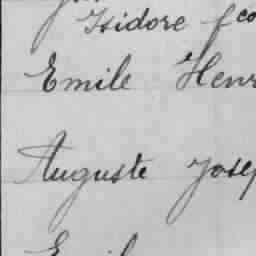 Isidore fco
Emile Henr
Auguste Josep